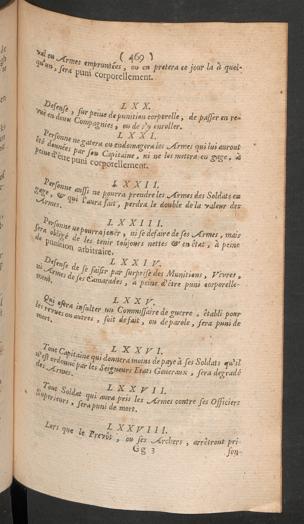 ( 469 )
val ou Armes empruntées, ou en pretera ce jour là à quel-
qu'un, sera puni corporellement.
LXX.
Defense, sur peine de punition corporelle, de passer en re-
vuë en deux Compagnies, ou de s'y enroller.
LXXI.
Personne ne gatera ou endomagera les Armes qui lui auront
été données par son Capitaine, ni ne les mettra en gage, à
peine d'être puni corporellement.
LXXII.
Personne aussi ne pourra prendre les Armes des Soldats en
gage, & qui l'aura fait, perdra le double de la valeur des
Armes.
LXXIII.
Personne ne pourra joüer, ni se defaire de ses Armes, mais
sera obligé de les tenir toujours nettes & en état, à peine
de punition arbitraire.
LXXIV.
Defense de se saisir par surprise des Munitions, Vivres,
ni Armes de ses Camarades, à peine d'être puni corporelle-
ment.
LXXV.
Qui osera insulter un Commissaire de guerre, établi pour
les revuës ou autres, soit de fait, ou de parole, sera puni de
mort.
LXXVI.
Tout Capitaine qui donnera moins de paye à ses Soldats qu'il
n'est ordonné par les Seigneurs Etats Generaux, sera degradé
des Armes.
LXXVII.
Tout Soldat qui aura pris les Armes contre ses Officiers
Superieurs, sera puni de mort.
LXXVIII.
Lors que le Prevôt, ou ses Archers, arrêtront pri-
Gg 3
son-